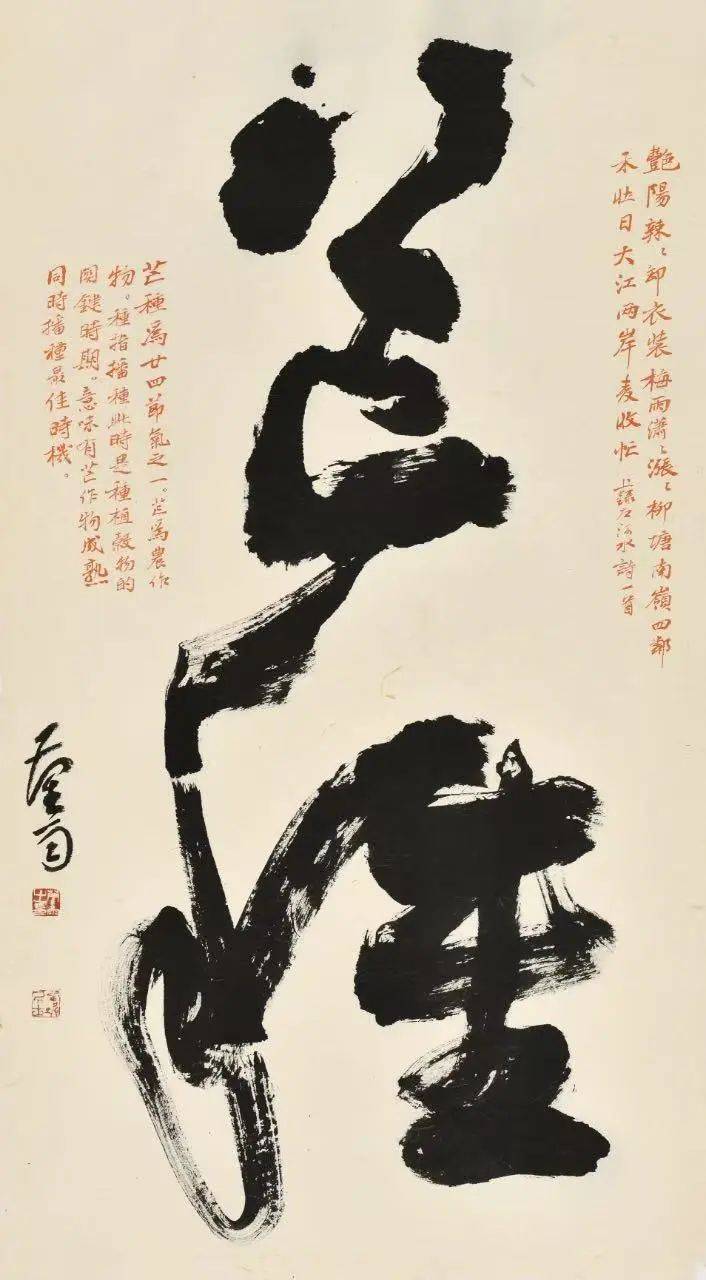 艷陽辣〻卸衣裝梅雨瀟〻漲〻柳塘南嶺四鄰
禾壯日大江兩岸麦收忙 上錄左河水詩一首
芒種
芒種爲廿四節氣之一。芒爲農作
物。種指播種此時是種植穀物的
関鍵時期。意味有芒作物成熟
同時播種最佳時機。